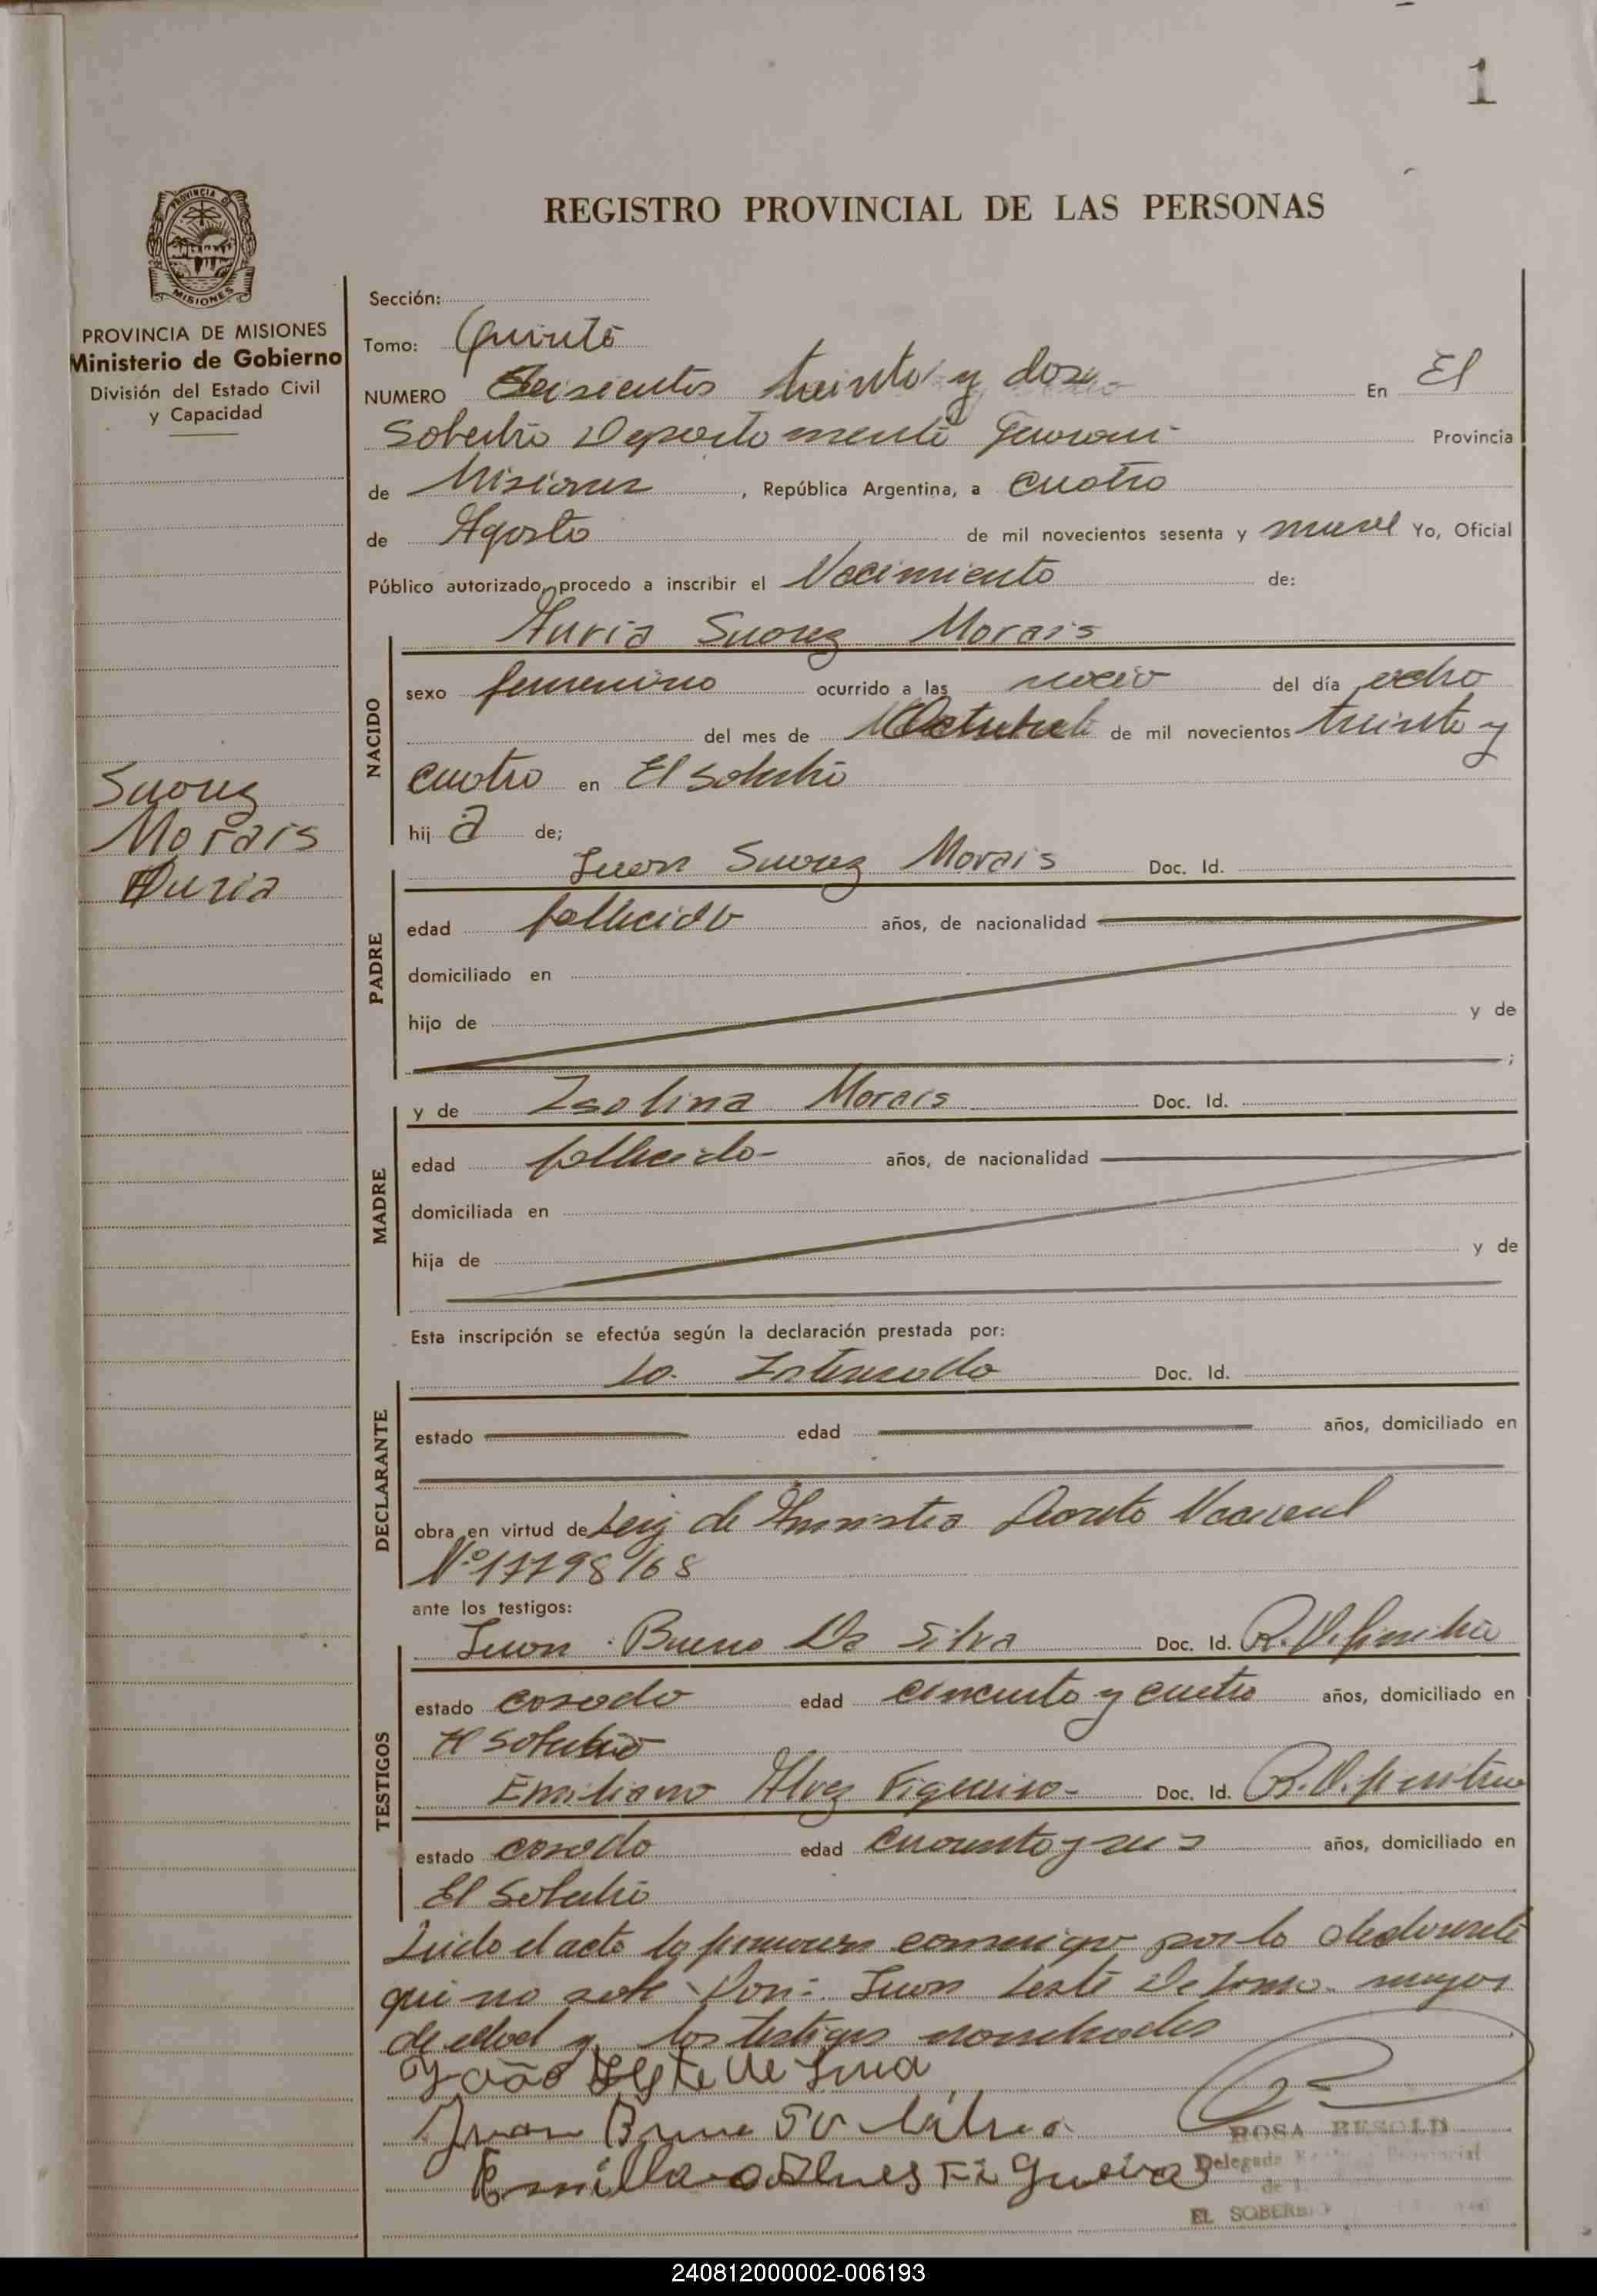 1
PROVINCIA DE
MISIONES
REGISTRO PROVINCIAL DE LAS PERSONAS
PROVINCIA DE MISIONES
Ministerio de Gobierno
División del Estado Civil
y Capacidad
Suarez
Morais
Auria
Sección:
Tomo: Quinto
NUMERO Seiscientos treinta y dos En El
Soberbio Departamento Guarani Provincia
de Misiones, República Argentina, a cuatro
de Agosto de mil novecientos sesenta y nueve Yo, Oficial
Público autorizado, procedo a inscribir el Nacimiento de:
Auria Suarez Morais
NACIDO
sexo femenino ocurrido a las del día ocho
del mes de Octubre de mil novecientos treinta y
cuatro en El Soberbio
hij a de;
Juan Suarez Morais Doc. Id.
PADRE
edad fallecido años, de nacionalidad
domiciliado en
hijo de y de
;
y de Isolina Morais Doc. Id.
MADRE
edad fallecido- años, de nacionalidad
domiciliada en
hija de y de
Esta inscripción se efectúa según la declaración prestada por:
la Interesada Doc. Id.
DECLARANTE
estado edad años, domiciliado en
obra en virtud de Ley de Amnistia Nacional
Nº 17798/68
ante los testigos:
Juan Bueno Da Silva Doc. Id.
TESTIGOS
estado casado edad cincuenta y cuatro años, domiciliado en
El Soberbio
Emiliano Alvez Figueira- Doc. Id.
estado casado edad cuarenta y seis años, domiciliado en
El Soberbio
Leido el acta la conmigo por la declarante
que no sabe Don: Juan Leste De Lima mayor
de edad y los testigos nombrados
João Leste de Lima
Juan
Figueira
ROSA RESOLD
Delegada Provincial
EL SOBERBIO
240812000002-006193